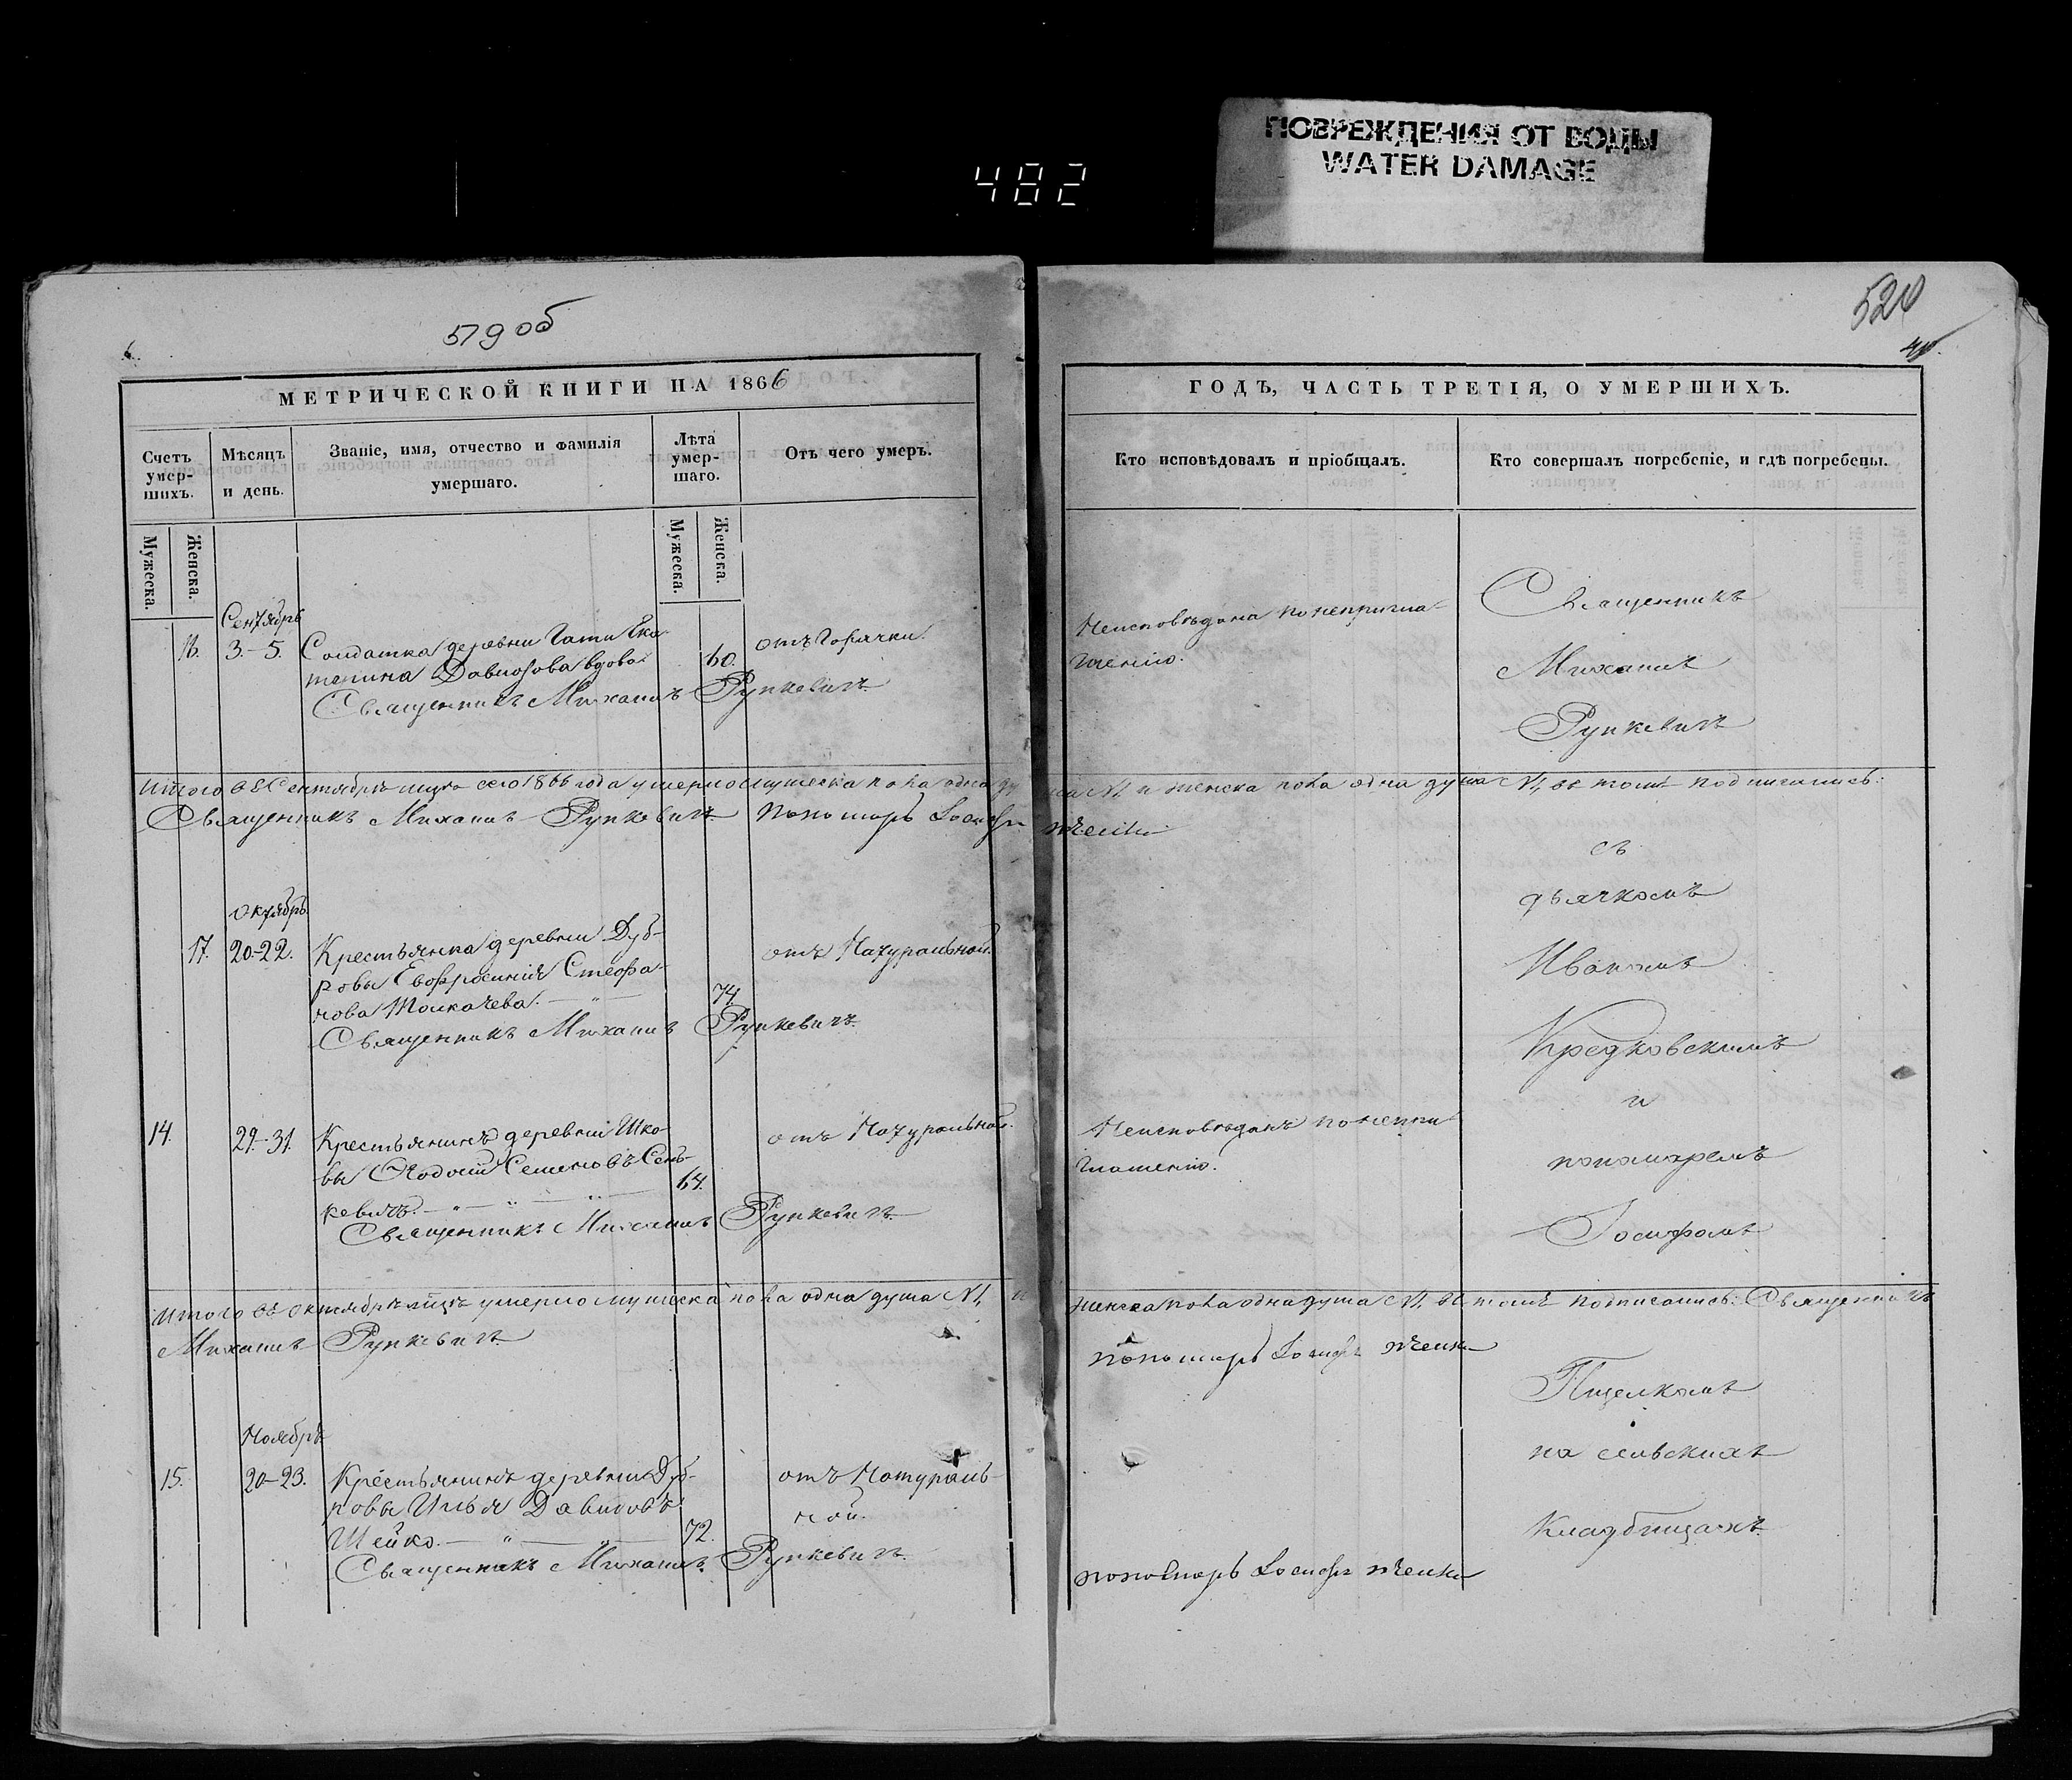 ПОВРЕЖДЕНИЯ ОТ ВОДЫ
WATER DAMAGE
482
579 об
520
МЕТРИЧЕСКОЙ КНИГИ НА 1866
Счетъ умер-шихъ.
Мѣсяцъ и день.
Званіе, имя, отчество и фамилія умершаго.
Лѣта умер-шаго.
Отъ чего умеръ.
Мужеска.
Женска.
Мужеска.
Женска.
Сентябрь
16. 3.-5. Солдатка деревни Гати Ека- 60. отъ Горячки.
терина Давидова вдова
Священникъ Михаилъ Рункевичъ
Итого въ Сентябрѣ мцѣ сего 1866 года умерло мужеска пола одна ду
Священникъ Михаилъ Рункевичъ Пономарь Іосифъ
Октябрь
17. 20-22. Крестьянка деревни Дуб- отъ Натуральной.
ровы Евфросинія Стефа-
нова Толкачева. 74.
Священникъ Михаилъ Рункевичъ.
14. 29.-31. Крестьянинъ деревни Шко- отъ Натуральной.
вы Семеновъ Сень- 64.
кевичъ.
Священникъ Михаилъ Рункевичъ.
Итого въ Октябрѣ мцѣ умерло мужеска пола одна душа №1, и
Михаилъ Рункевичъ.
Ноябрь
15. 20-23. Крестьянинъ деревни Дуб- отъ Натураль-
ровы Илья Давидовъ ной.
Шейко. 72.
Священникъ Михаилъ Рункевичъ.
ГОДЪ, ЧАСТЬ ТРЕТІЯ, О УМЕРШИХЪ.
Кто исповѣдовалъ и пріобщалъ.
Кто совершалъ погребеніе, и гдѣ погребены.
Неисповѣдана по неприглa-
шенію.
Священникъ
Михаилъ
Рункевичъ
ша №1 и женска пола одна душа №1, въ томъ подписались:
съ
дьячкомъ
Иваномъ
Неисповѣданъ по непри-
глашенію.
и
пономаремъ
Іосифомъ
женска пола одна душа №1, въ томъ подписались: Священникъ
Пономарь Іосифъ
Пщелкомъ
на сельскихъ
Кладбищахъ.
пономарь Іосифъ